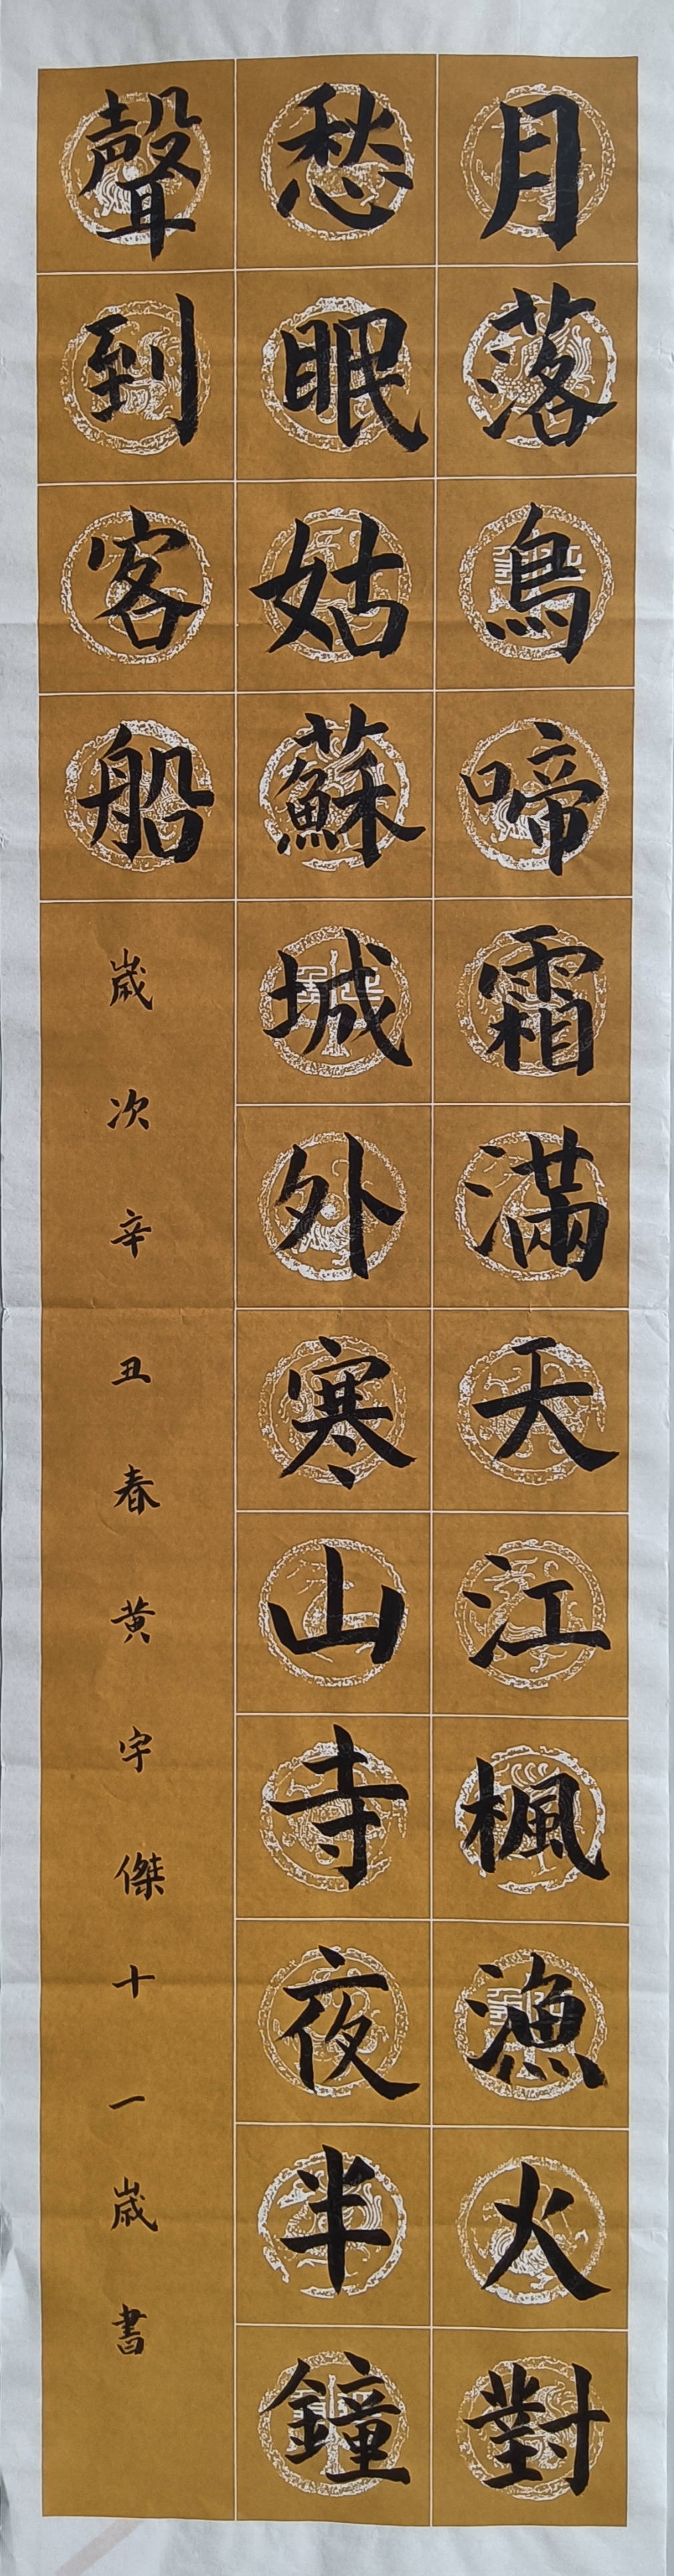 月落烏啼霜滿天江楓漁火對
愁眠姑蘇城外寒山寺夜半鐘
聲到客船
歲次辛丑春黄宇傑十一歲書